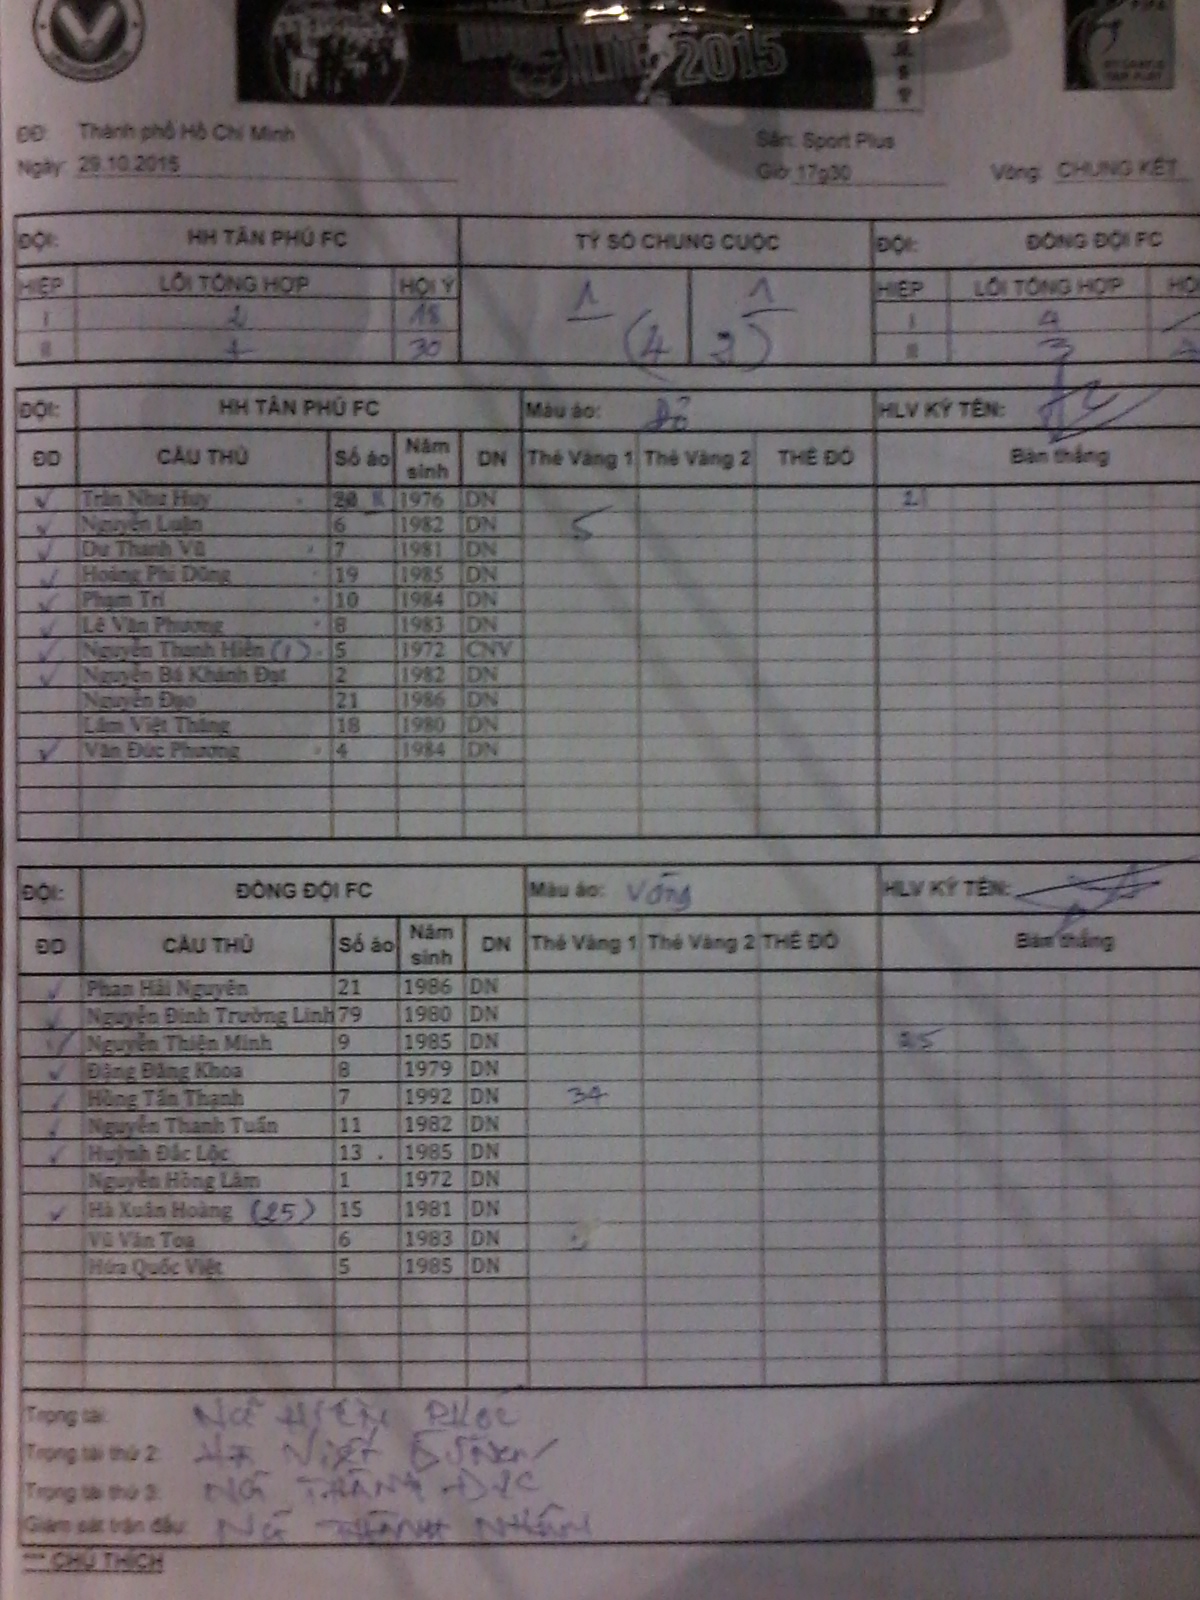 2015
ĐĐ: Thành phố Hồ Chí Minh Sân: Sport Plus
Ngày: 29.10.2015 Giờ 17g30 Vòng: CHUNG KẾT
ĐỘI: HH TÂN PHÚ FC TỶ SỐ CHUNG CUỘC ĐỘI: ĐỒNG ĐỘI FC
HIỆP LỖI TỔNG HỢP HỘI Ý 1 1 HIỆP LỖI TỔNG HỢP HỘI
I 2 18 I 4
II 1 30 (4 3) II 3
ĐỘI: HH TÂN PHÚ FC Màu áo: Đỏ HLV KÝ TÊN:
ĐD CẦU THỦ Số áo Năm sinh DN Thẻ Vàng 1 Thẻ Vàng 2 THẺ ĐỎ Bàn thắng
Trần Như Huy 1976 DN 21
Nguyễn Luận 6 1982 DN 5
Dư Thanh Vũ 7 1981 DN
Hoàng Phi Dũng 19 1985 DN
Phạm Trí 10 1984 DN
Lê Văn Phương 8 1983 DN
Nguyễn Thanh Hiền (1) 5 1972 CNV
Nguyễn Bá Khánh Đạt 2 1982 DN
Nguyễn Đạo 21 1986 DN
Lâm Việt Thắng 18 1980 DN
Văn Đức Phương 4 1984 DN
ĐỘI: ĐỒNG ĐỘI FC Màu áo: Vàng HLV KÝ TÊN:
ĐD CẦU THỦ Số áo Năm sinh DN Thẻ Vàng 1 Thẻ Vàng 2 THẺ ĐỎ Bàn thắng
Phan Hải Nguyên 21 1986 DN
Nguyễn Đình Trường Linh 79 1980 DN
Nguyễn Thiện Minh 9 1985 DN
Đặng Đăng Khoa 8 1979 DN
Hồng Tấn Thạnh 7 1992 DN 34
Nguyễn Thanh Tuấn 11 1982 DN
Huỳnh Đắc Lộc 13 1985 DN
Nguyễn Hồng Lâm 1 1972 DN
Hà Xuân Hoàng (25) 15 1981 DN
Vũ Văn Toạ 6 1983 DN
Hứa Quốc Việt 5 1985 DN
Trọng tài:
Trọng tài thứ 2:
Trọng tài thứ 3:
Giám sát trận đấu:
*** CHÚ THÍCH